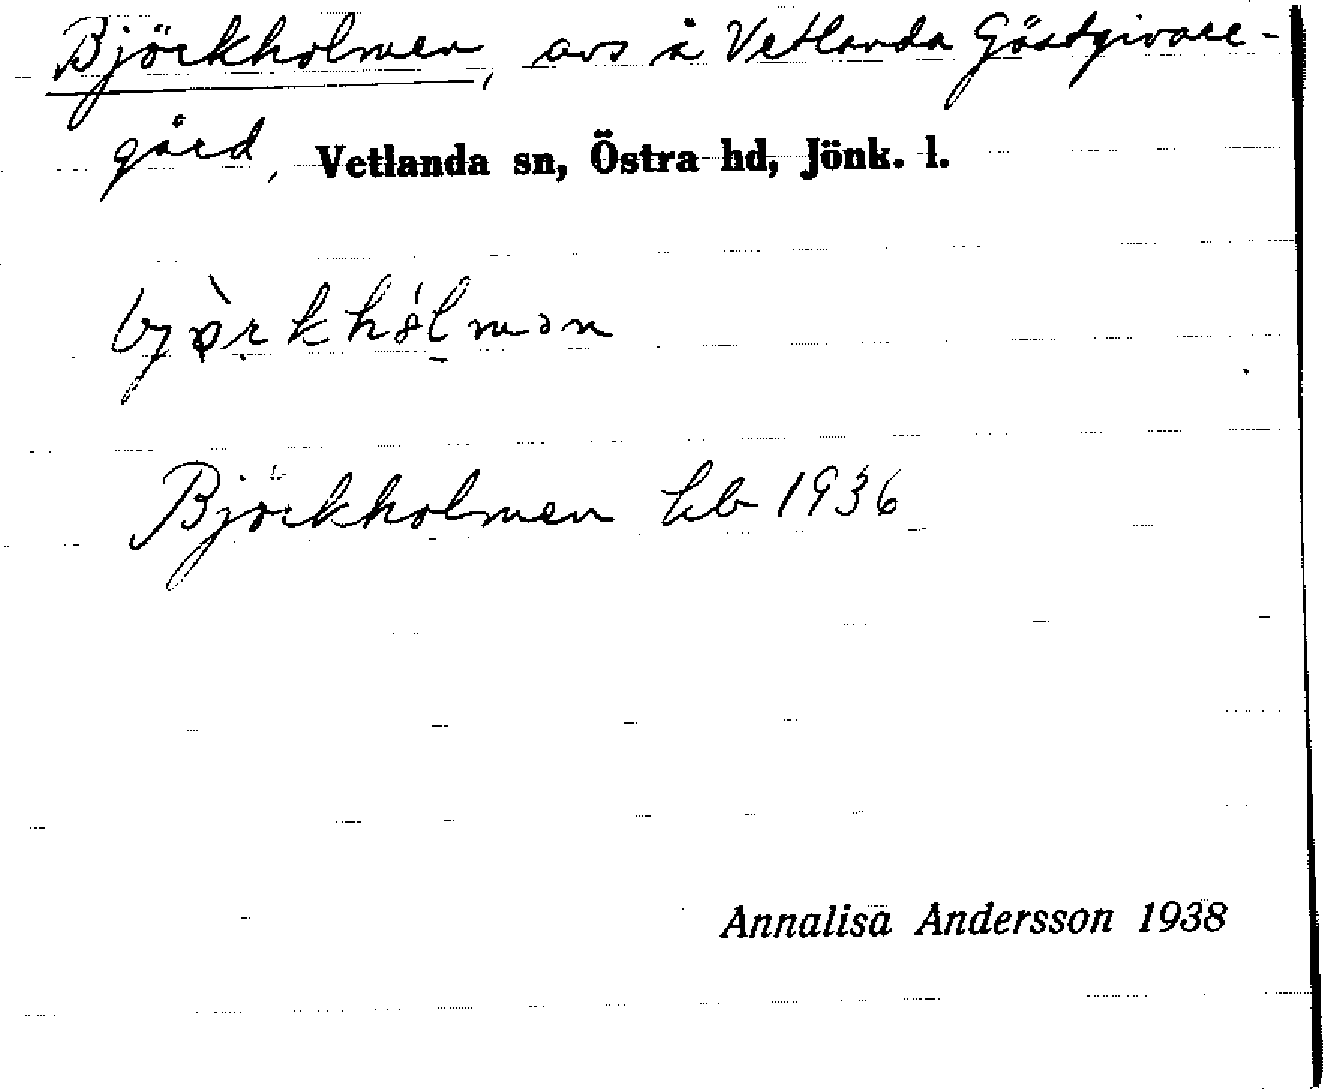 Björkholmen, avs å Vetlanda Gästgivare-
gård, Vetlanda sn, Östra hd, Jönk. l.
bjø̀rkhólmən
Björkholmen hb 1936
Annalisa Andersson 1938